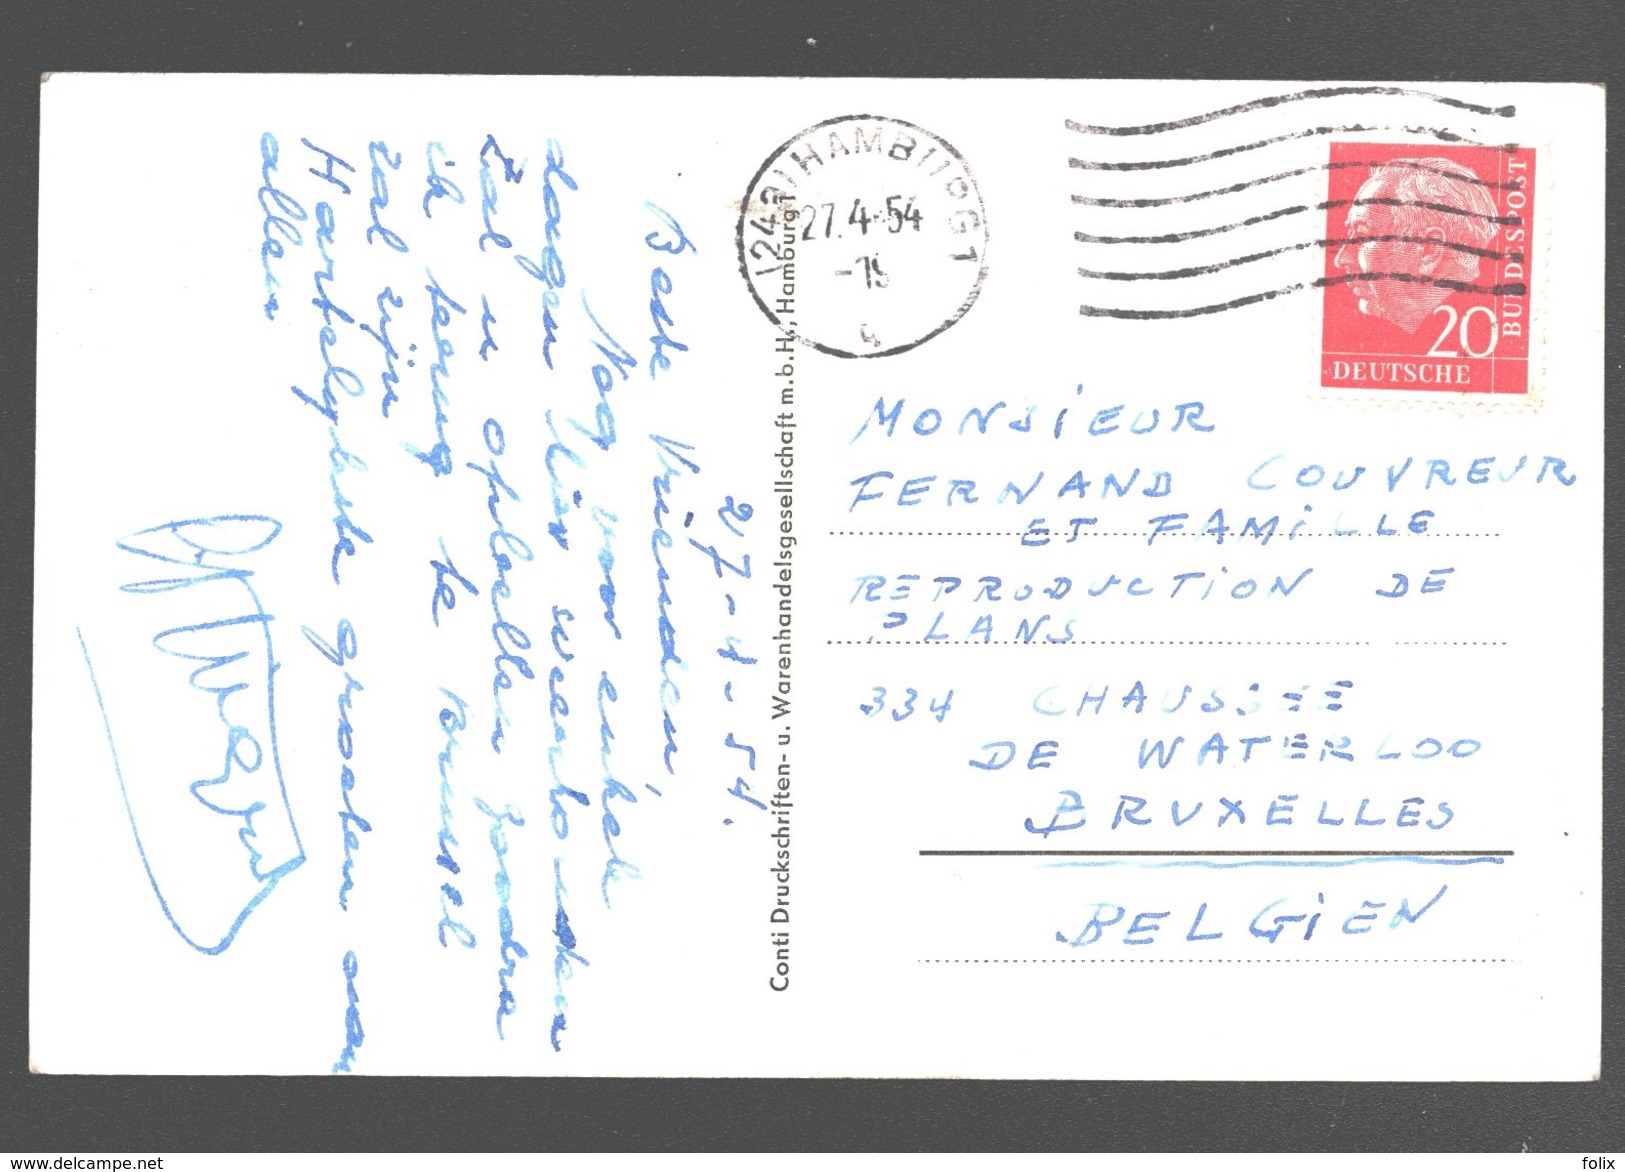 27-4-54.
Beste Vrienden,
Nog voor enkele
dagen hier weerhouden
Zal u opbellen zoodra
ik terug te Brussel
zal zijn
Hartelijkste groeten aan
allen
Conti Druckschriften- u. Warenhandelsgesellschaft m.b.H., Hamburg 1
(24a) HAMBURG 1
27.4.54
BUNDESPOST
20
DEUTSCHE
MONSIEUR
FERNAND COUVREUR
ET FAMILLE
REPRODUCTION DE
PLANS
334 CHAUSSEE
DE WATERLOO
BRUXELLES
BELGIEN
www.delcampe.net
folix